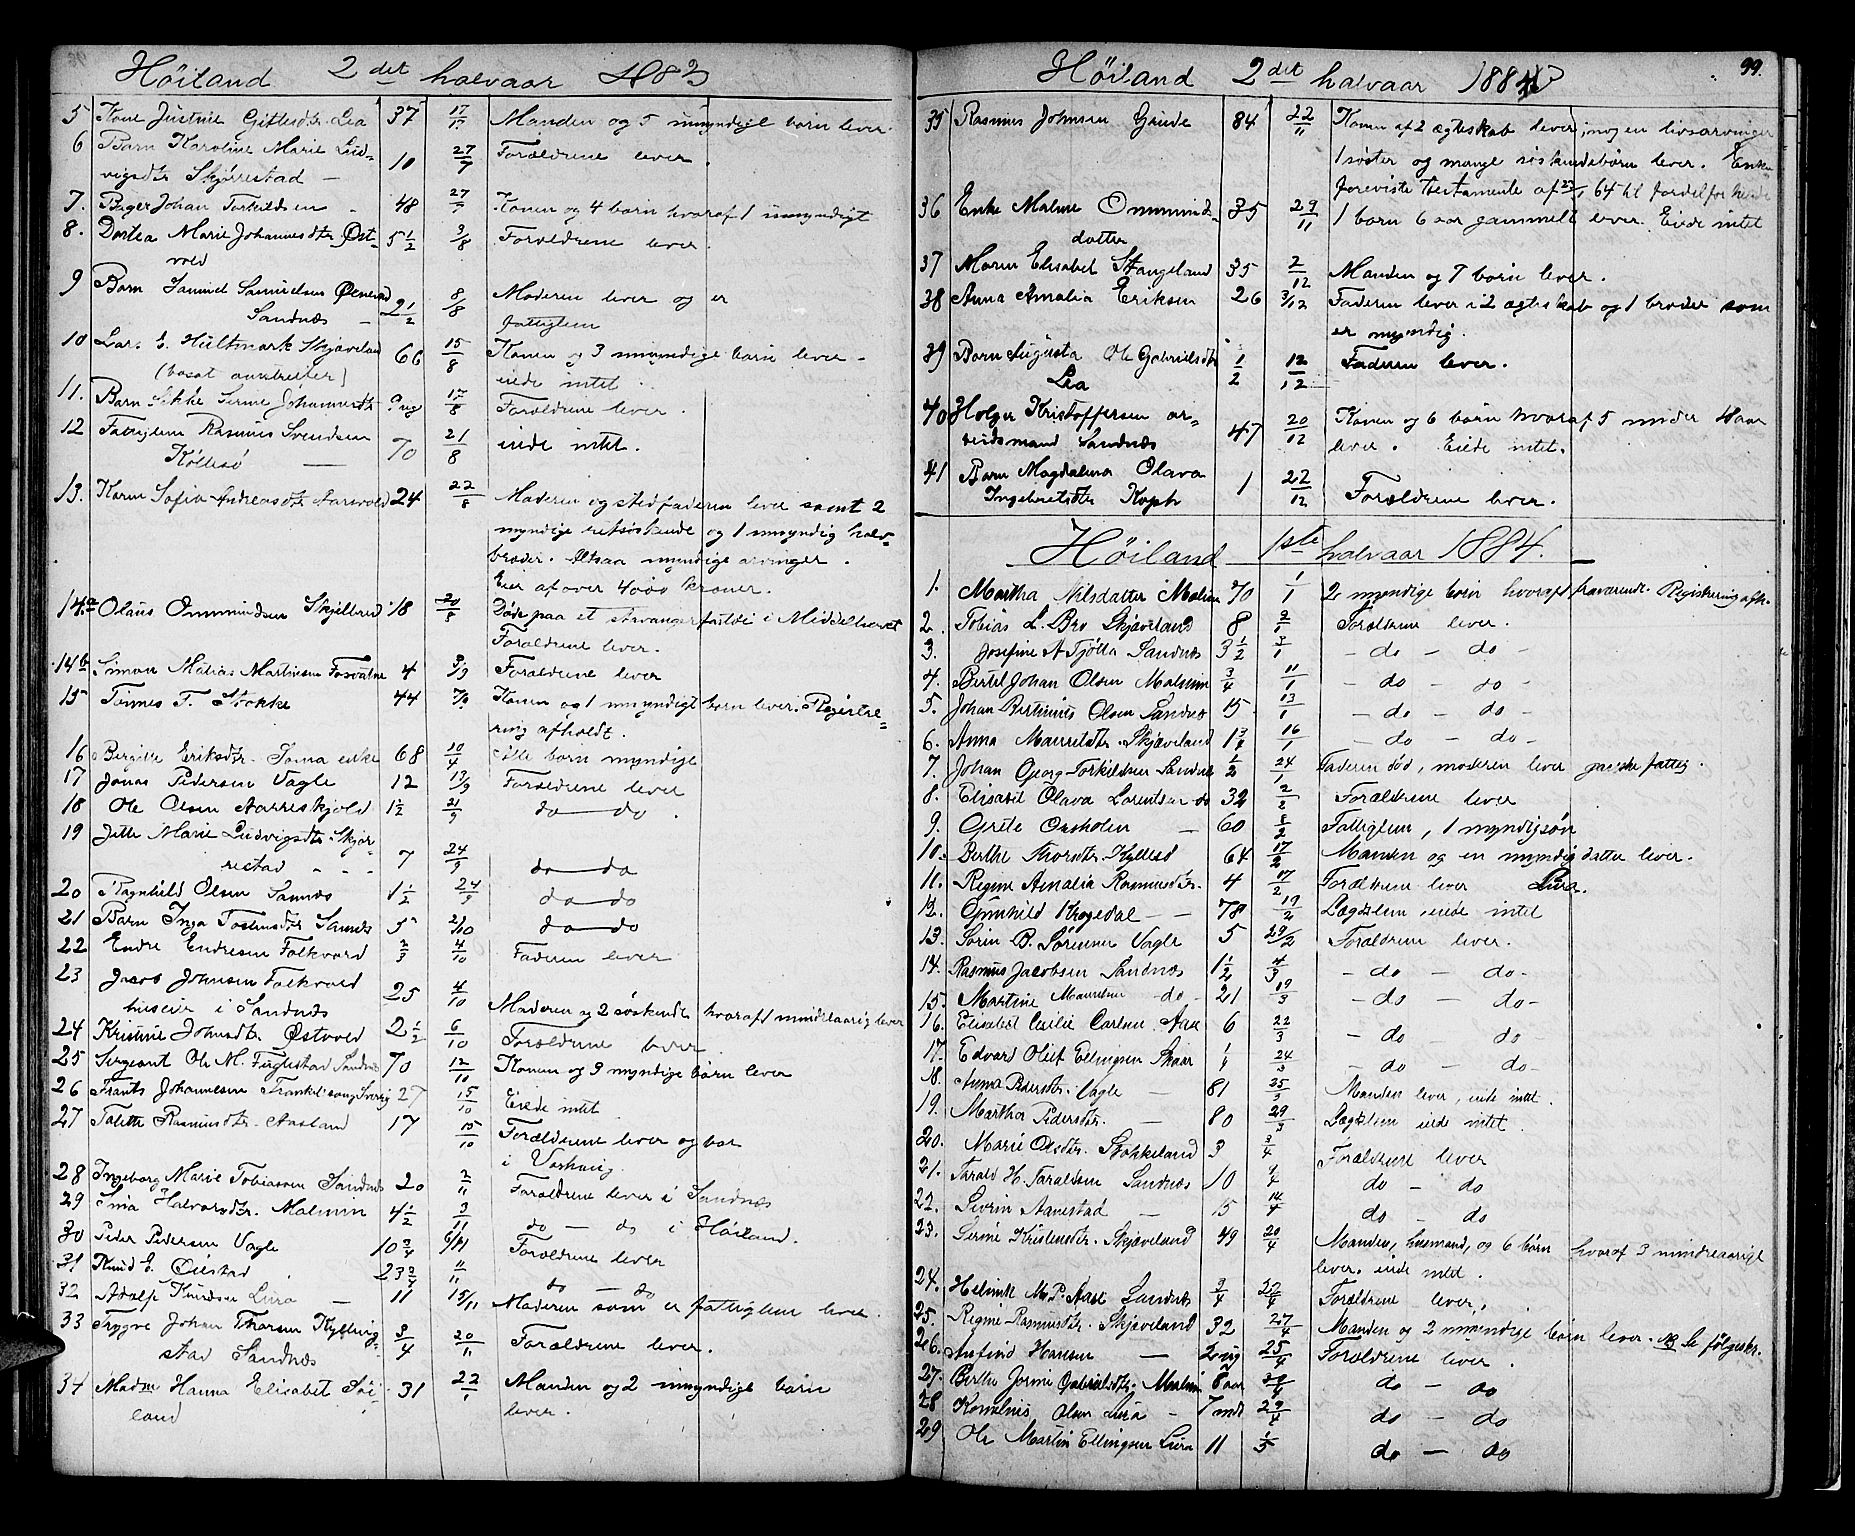 Höiland 2det halvaar 1883
5 Kone Justine Gittesdtr. Lea 37 17/7 Manden og 5 umyndige børn lever.
6 Barn Karoline Marie Lud-
vigsdtr Skjørestad — 10 27/7 Forældrene lever.
7. Bager Johan Torkildsen 48 27/7 Konen og 4 børn hvoraf 1 umyndigt
8. Dortea Marie Johannesdtr Øst-
vold 5 1/2 3/8 Forældrene lever.
9 Barn Samuel Samuelsen
Sandnæs — 2 1/2 8/8 Moderen lever og er
fattiglem
10 Lars E. Hultmark Skjæveland 66 15/8 Konen og 3 umyndige børn lever -
(bosat) eiede intet.
11. Barn Sikke Serine Johannesdtr 17/8 Forældrene lever.
12 Fattiglem Rasmus Svendsen
Køllesø — 70 21/8 eiede intet.
13. Karen Sofia Andreasdtr Aarsvold 24 22/8 Moderen og stedfaderen lever samt 2
myndige retsøskende og 1 umyndig halv-
broder. Altsaa myndige arvinger.
Eier af over 4000 kroner.
14a Olaus Ommundsen Skjelbred 18 Døde paa et Stavangerfartøi i Middelhavet
Forældrene lever.
14b Simon Matias Martinsen 4 3/9 Forældrene lever
15 Tønnes T. Stokke 44 7/9 Konen og 1 umyndigt barn lever. Registre-
ring afholdt.
16 Bergitte Eriksdtr. Soma enke 68 10/4 Alle børn myndige
17 Jonas Pedersen Vagle 12 19/9 Forældrene lever
18 Ole Olsen Aarreskjold 1 1/2 21/9 do — do.
19 Jette Marie Ludvigsdtr. Skjør-
restad 7 24/9 do — do
20 Ragnhild Olsen Sannæs 1 1/2 24/9 do — do
21 Barn Inga Tostensdtr Sannæs 5 2/10 do — do
22 Endre Endresen Folkvord 2/3 4/10 Faderen lever
23 Jacob Johnsen Folkvord
huseier i Sandnæs 25 4/10 Moderen og 2 søskende hvoraf 1 mindreaarig lever
24 Kristine Johnsdtr. Østvold 2 1/2 6/10 Forældrene lever
25 Sergeant Ole M. Fuglestad Sandnæs 70 12/10 Konen og 3 myndige børn lever
26 Frants Johannesen 27 15/10 Eiede intet
27 Talette Rasmusdtr. Aasland 17 15/10 Forældrene lever og bor
i Varhaug.
28 Ingeborg Marie Tobiassen Sandnæs 20 2/11 Forældrene lever i Sandnæs
29 Sina Halvorsdtr. Malmin 4 1/2 3/11 do — do i Höiland.
30 Peder Pedersen Vagle 10 3/4 6/11 Forældrene lever
31 Knud E. Øiestad 23 3/4 11/11 do — do
32 Adolf Knudsen Lura — 11 15/11 Moderen som er fattiglem lever.
33 Trygve Johan Thorsen Kyllings-
stad Sandnæs 3/4 20/11 Forældrene lever.
34 Madm Hanna Elisabet Søi-
land 31 Manden og 2 umyndige børn
lever.
99.
Höiland 2det halvaar 1883
35 Rasmus Johnsen Gande 84 22/11 Konen af 2 ægteskab lever, ingen livsarvinger
1 søster og mange søskendebørn lever. Enken
foreviste testamente af 64 til fordel for hende
36 Enke Malene Ommunds-
datter 35 29/11 1 barn 6 aar gammelt lever. Eiede intet
37 Maren Elisabet Stangeland 35 2/12 Manden og 7 børn lever.
38 Anna Amalia Eriksen 26 3/12 Faderen lever i 2 ægteskab og 1 broder som
er myndig.
39 Barn Augusta Ole Gabrielsdtr
Lea 1/2 12/12 Faderen lever.
40 Holger Kristoffersen ar-
beidsmand Sandnæs 47 20/12 Konen og 6 børn hvoraf 5 under aar
lever. Eiede intet.
41 Barn Magdalena Olava
Ingebretsdtr Koph 1 22/12 Forældrene lever.
Höiland 1ste halvaar 1884.
1. Martha Nilsdatter Malmin 70 1/1 2 myndige børn hvoraf 1 fraværende. Registrering afh.
2. Tobias L. Bro Skjæveland 8 2/1 Forældrene lever.
3. Josefine A Tjøtta Sandnæs 3 1/2 3/1 — do — do —
4. Bertel Johan Olsen Malmin 3/4 11/1 — do — do —
5. Johan Bertinius Olsen Sandnæs 15 13/1 — do — do —
6. Anna Mauritsdtr. Skjæveland 1 3/4 16/1 — do — do —
7. Johan Georg Torkildsen Sandnæs 1/2 24/1 Faderen død, moderen lever ganske fattig.
8. Elisabet Olava Lorentsen do 32 2/2 Forældrene lever
9. Grete — 60 8/2 Fattiglem, 1 myndig søn
10. Berthe Thorsdtr. Kyllesø 64 17/2 Manden og en myndig datter lever.
11. Regine Amalia Rasmusdtr. 4 17/2 Forældrene lever Lura.
12. Gunhild Krogedal — 78 19/2 Lægdslem, eiede intet
13. Sørin B. Sørensen Vagle 5 29/2 Forældrene lever.
14. Rasmus Jacobsen Sandnæs 1 1/2 4/3 — do — do —
15. Martine Mauritsen — do — 21 19/3 — do — do —
16. Elisabet Cecilie Carlsen Aase 6 22/3 — do — do —
17. Edvard Oluf Ellingsen Skaar 24/3 — do — do —
18. Anna Pedersdtr. Vagle — 81 25/3 Manden lever, eiede intet.
19. Martha Pedersdtr. — 80 29/3 Lægdslem eiede intet.
20. Marie Olsdtr. Stokkeland 3 3/4 Forældrene lever
21. Tarald H. Taraldsen Sandnæs 10 do — do
22. Sivrin Aanestad — 15 14/4 do — do
23. Serine Kristensdtr. Skjæveland 49 20/4 Manden, husmand, og 6 børn hvoraf 3 mindreaarige
lever. eiede intet.
24. Helmik M. P. Aase Sandnæs 3/4 Forældrene lever,
25. Regine Rasmusdtr. Skjæveland 32 27/4 Manden og 2 umyndige børn lever. NB Se følgeskr.
26. Arfind Hansen — 2 ug 25/4 Forældrene lever.
27. Berthe Jorine Gabrielsdtr. Malmin 8 aar do — do
28 Kornelius Olsen Lura — 7 mdr 29/4 do — do
29 Ole Martin Ellingsen Lura 11 1/5 do — do